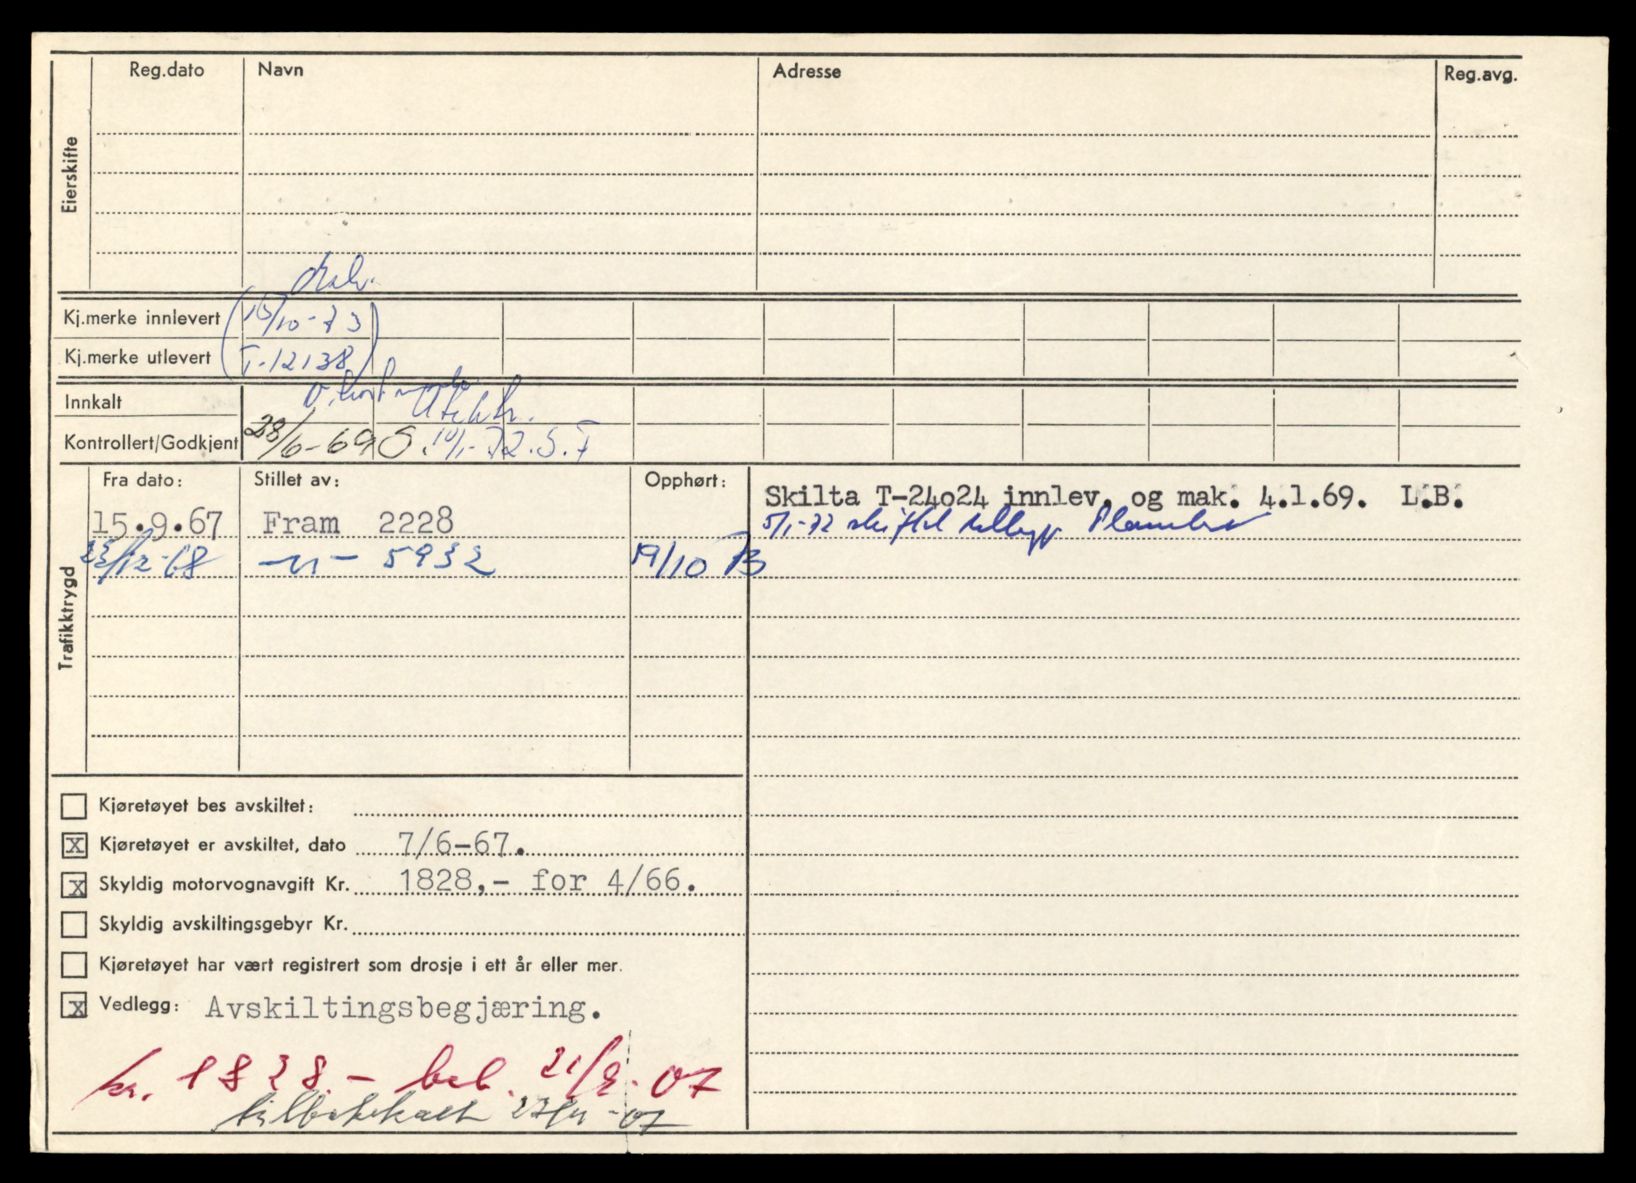 Reg.dato Navn Adresse Reg.avg.
Eierskifte
Kj.merke innlevert 15/10-73
Kj.merke utlevert T-12138
Innkalt
Kontrollert/Godkjent 28/6-69 S. 10/1-72.S.F
Fra dato: Stillet av: Opphørt:
Trafikktrygd
15.9.67 Fram 2228
23/12-68 -"- 5932 19/10 73
Skilta T-24o24 innlev. og mak. 4.1.69. L.B.
5/1-72 skiftet
Kjøretøyet bes avskiltet:
x Kjøretøyet er avskiltet, dato 7/6-67.
x Skyldig motorvognavgift Kr. 1828,- for 4/66.
Skyldig avskiltingsgebyr Kr.
Kjøretøyet har vært registrert som drosje i ett år eller mer.
x Vedlegg: Avskiltingsbegjæring.
kr. 1828.- bet. 21/9-67
tilbakekalt